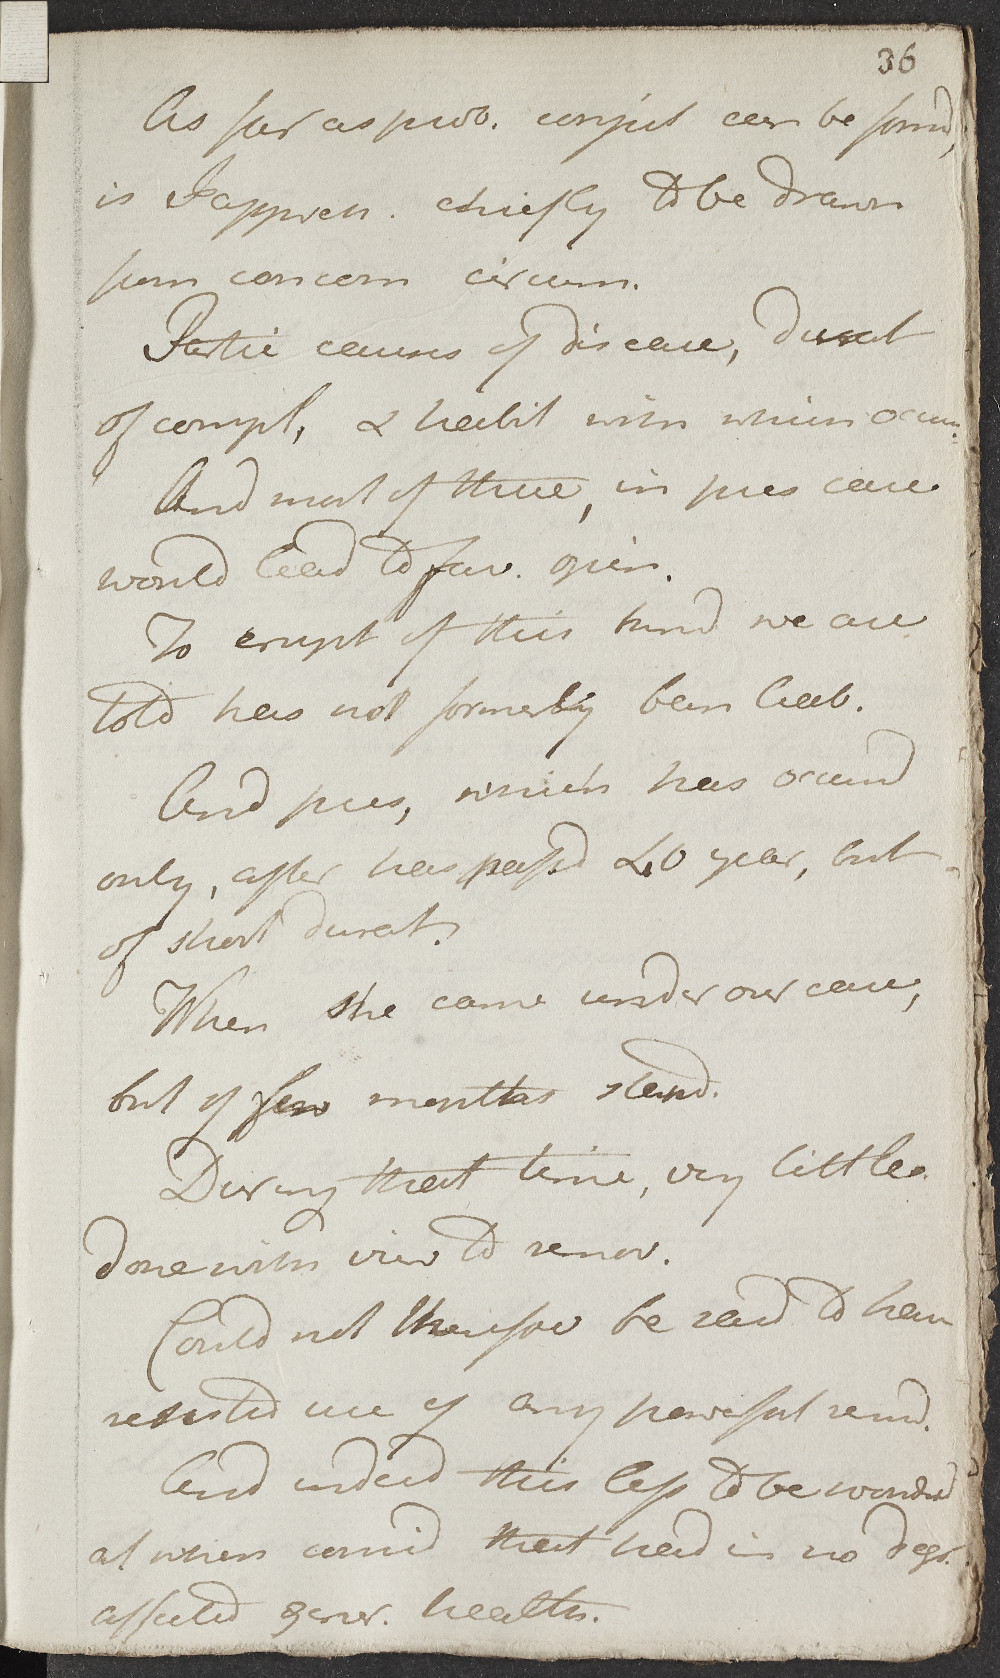 36
As far as prob. conject can be form'd,
is I appreh. chiefly to be drawn
from concom circum.
Partic causes of disease, durat
of compl, & habit with which occurs.
And most of these, in pres case
would lead to fav. opin.
To erupt of this kind we are
told has not formerly been liab.
And pres, which has occurd
only, after has passd 40 year, but
of short durat.
When she came under our care,
but of few months stand.
During that time, very little
done with view to remov.
Could not therefore be said to have
resisted use of any powerful remed.
And indeed this less to be wonderd
at when consid that had in no degr.
affected gener. health.